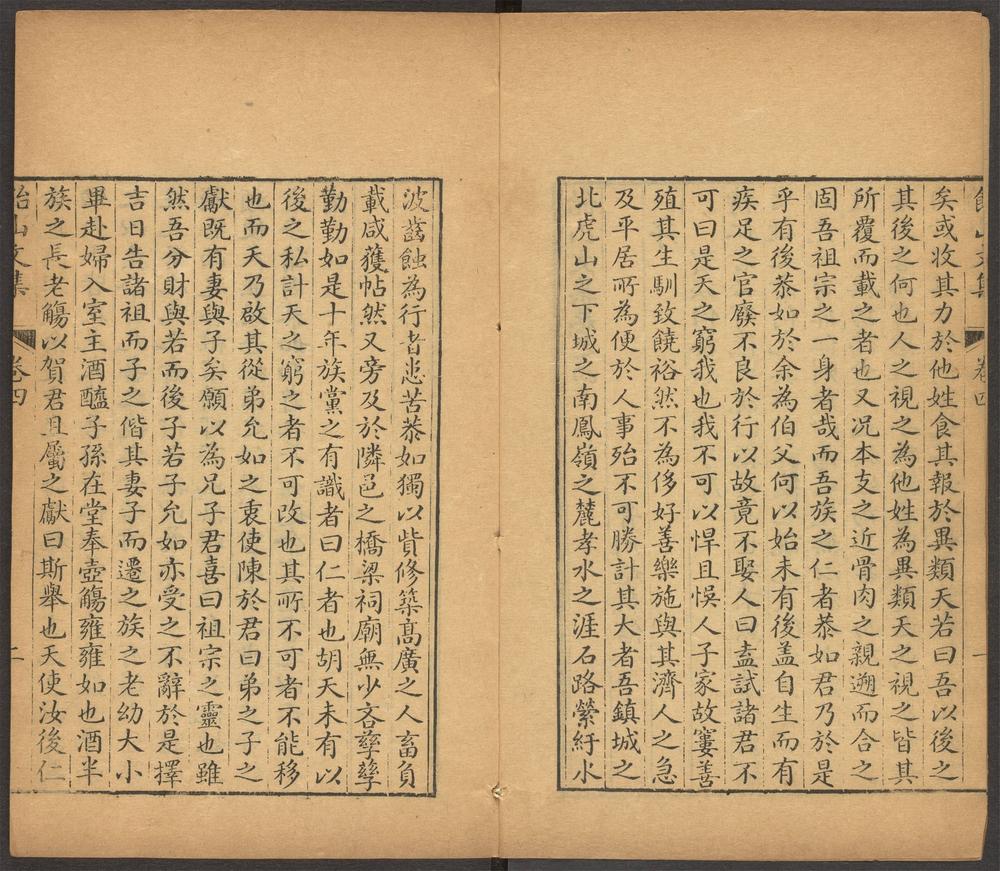 飴山文集 卷四 一
矣或收其力於他姓食其報於異類天若曰吾以後之
其後之何也人之視之為他姓為異類天之視之皆其
所覆而載之者也又况本支之近骨肉之親遡而合之
固吾祖宗之一身者哉而吾族之仁者恭如君乃於是
乎有後恭如於余為伯父何以始未有後盖自生而有
疾足之官廢不良於行以故竟不娶人曰盍試諸君不
可曰是天之窮我也我不可以悍且悞人子家故窶善
殖其生馴致饒裕然不為侈好善樂施與其濟人之急
及平居所為便於人事殆不可勝計其大者吾鎮城之
北虎山之下城之南鳳嶺之麓孝水之涯石路縈紆水
波齧蝕為行者患苦恭如獨以貲修築高廣之人畜負
載咸獲帖然又旁及於隣邑之橋梁祠廟無少吝孳孳
勤勤如是十年族黨之有識者曰仁者也胡天未有以
後之私計天之窮之者不可改也其所不可者不能移
也而天乃啟其從弟允如之衷使陳於君曰弟之子之
獻既有妻與子矣願以為兄子君喜曰祖宗之靈也雖
然吾分財與若而後子若子允如亦受之不辭於是擇
吉日告諸祖而子之偕其妻子而遷之族之老幼大小
畢赴婦入室主酒醯子孫在堂奉壺觴雍雍如也酒半
族之長老觴以賀君且屬之獻曰斯舉也天使汝後仁
飴山文集 卷四 二